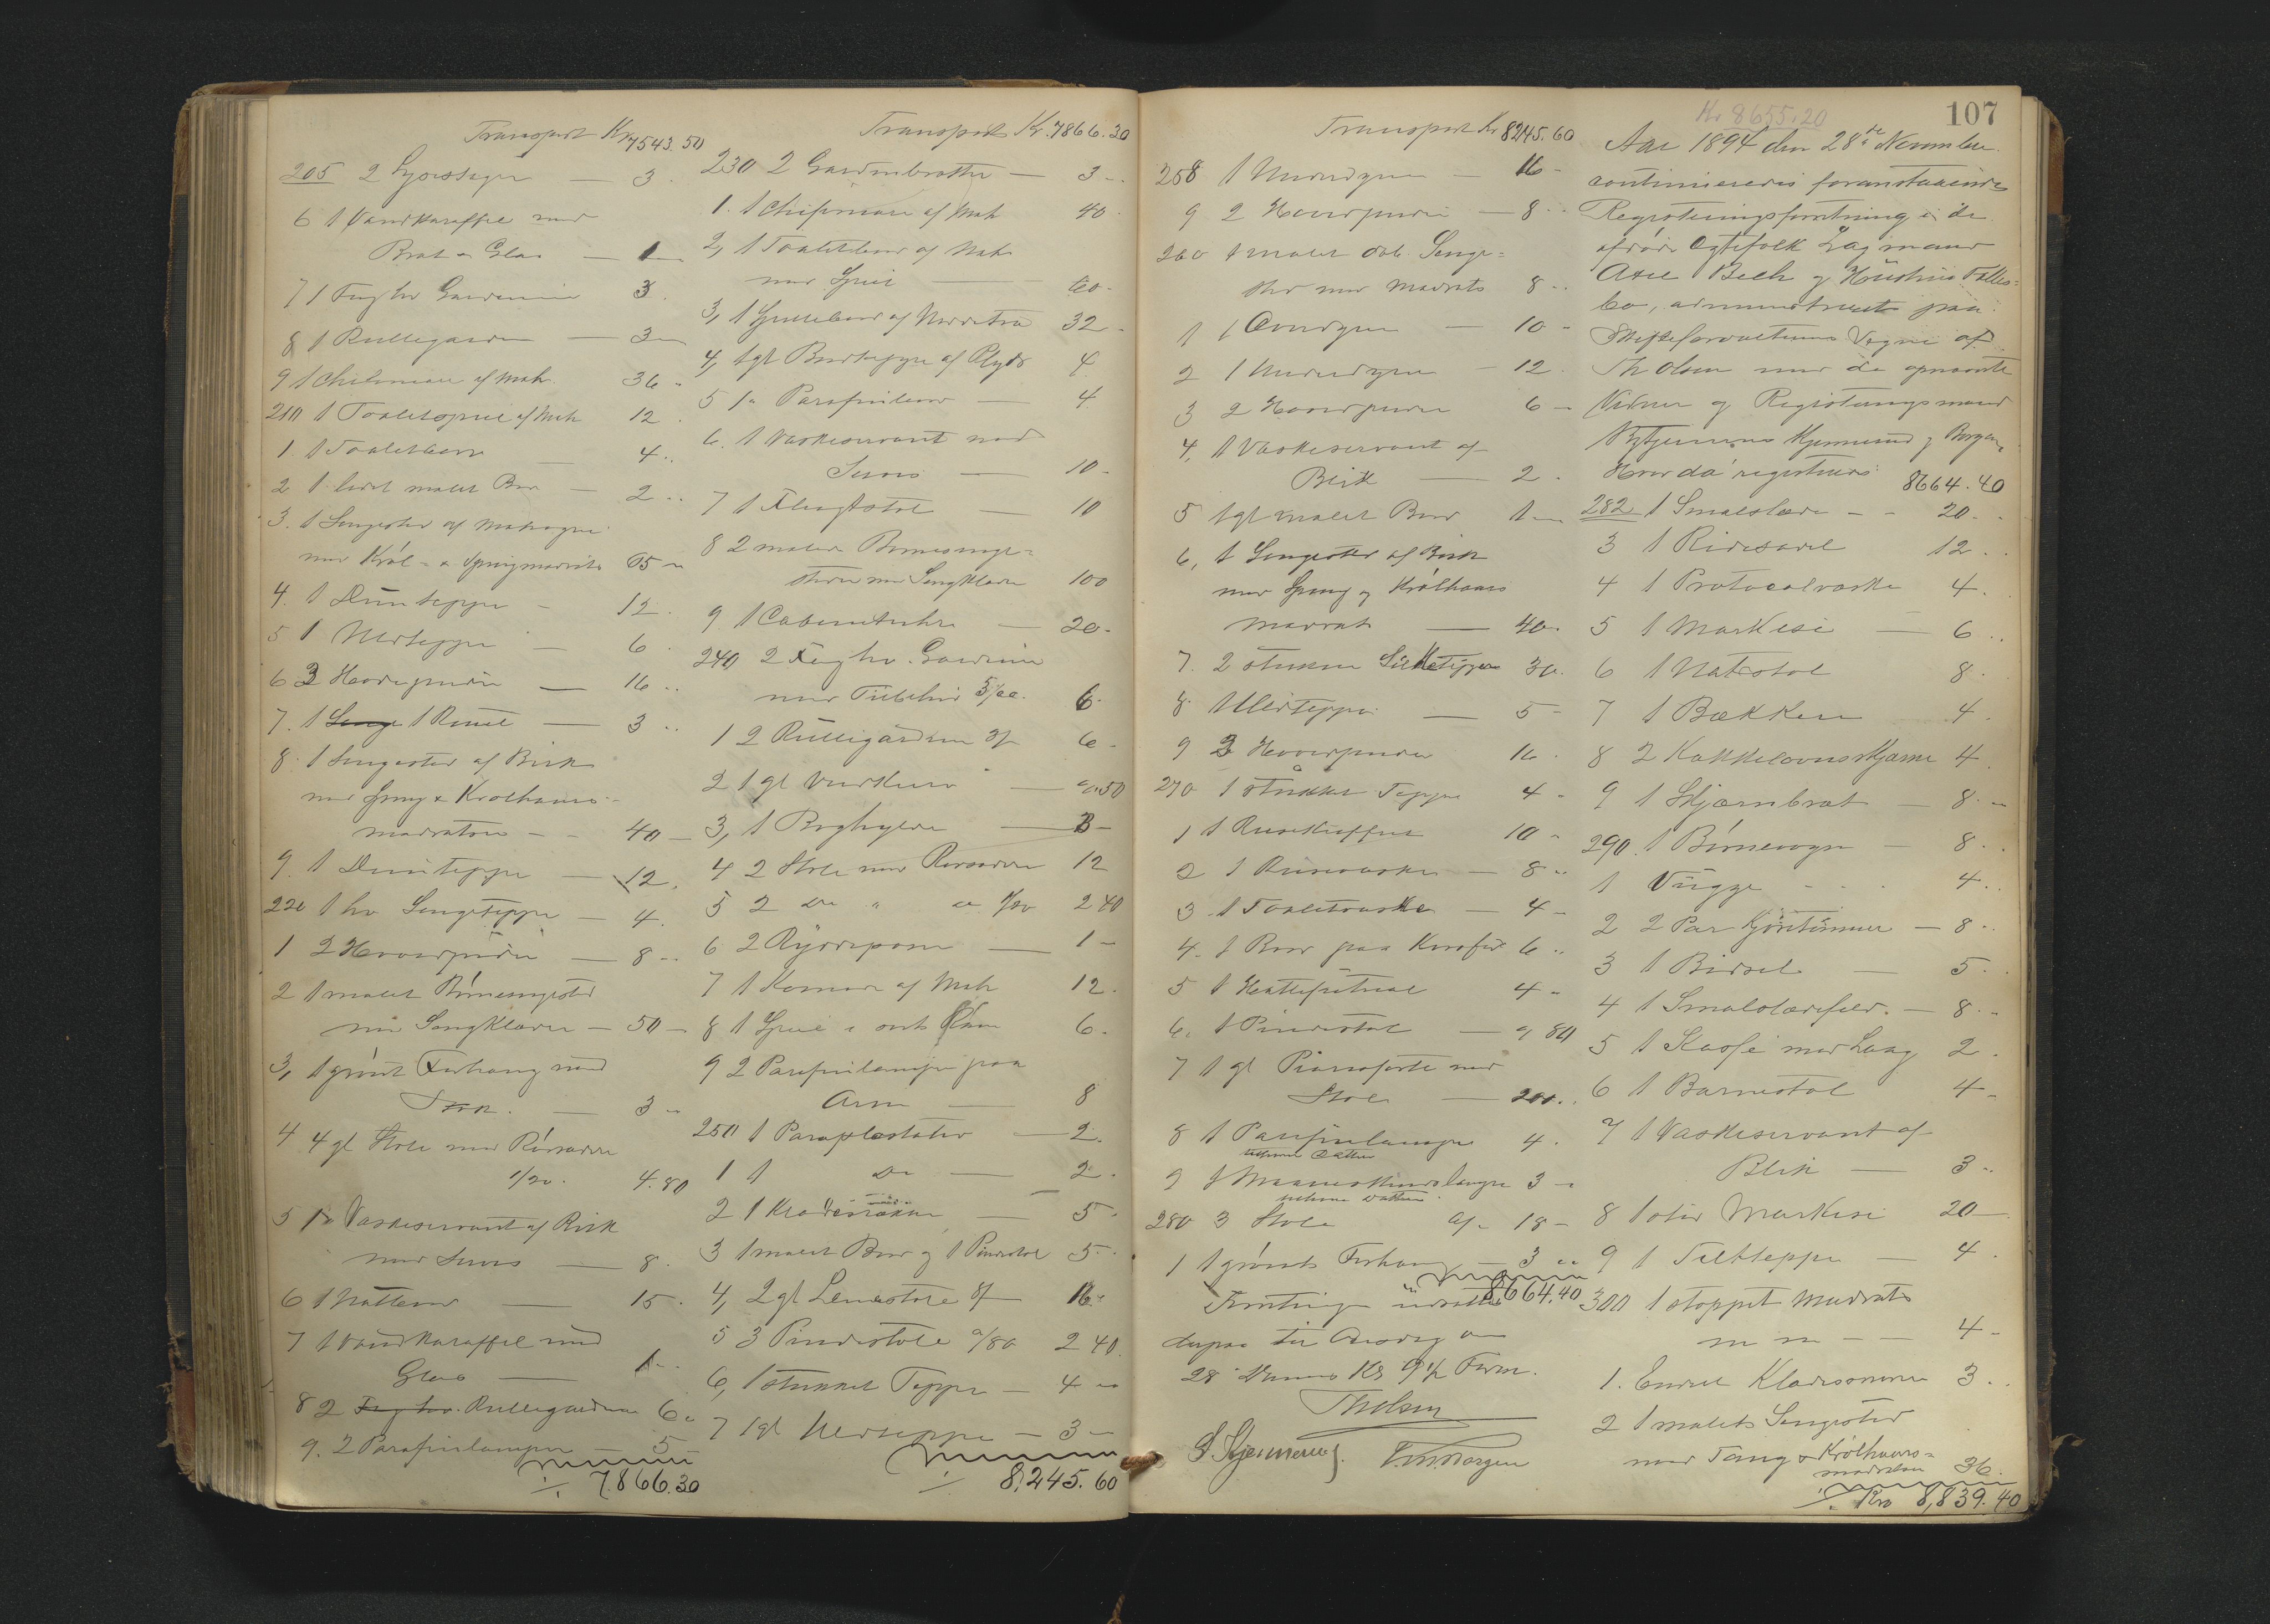 Transport Kr 7543.50
205 2 Lysestager — 3
6 1 Vandkaraffel med
Bret & Glas — 1 —
7 1 Fag hv Gardiner 3
8 1 Rullegardin — 3 —
9 1 Chifoniere af Mah. 36 -
210 1 Toiletspeil af Mah 12
1 1 Toiletbord — 4 ..
2 1 lidet malet Bord — 2 ..
3. 1 Sengested af Mahogni
med Krøl- & Springmadrats 65 —
4. 1 Dunteppe - 12.
5 1 Uldteppe — 6
6 3 Hovedpuder — 16 ..
7. 1 1 — 3 ..
8. 1 Sengested af Birk
med Spring & Krølhaars-
madratser - - 40 —
9. 1 Dunteppe — 12.
220 1 hv Sengeteppe — 4.
1 2 Hovedpuder — 8 ..
2 1 malet Børnesengested
med Sengklæder — 50 —
3, 1 grønt Forhang med
— 3 ..
4 4 gl Stole med Rørsæder
1/20. 4.80
5 1 Vaskeservant af Birk
med — 8.
6 1 Natbord — 15.
7 1 Vandkaraffel med
Glas — 1 ..
8 2 Fag hv. Rullegardiner 6 ..
9. 2 Parafinlamper — 5 —
./. 7.866.30
Transport Kr. 7866.30
230 2 Gardinbretter — 3 ..
1. 1 Chifoniere af Mah 40
2, 1 Toiletbord af Mah
med Speil — 60 -
3, 1 af Nøddetræ 32 -
4, 1 gl Bordteppe af Plyds 4
5 1 Parafinlampe — 4
6. 1 Vaskeservant med
— 10 -
7 1 — 10
8 2 malede Børnesenge-
steder med Sengklæder 100
9 1 — 20 -
240 2 Fag hv. Gardiner
med Tilbehør 3/00. 6.
1 2 Rullegardiner 3/ 6 -
2 1 gl — 0.50
3, 1 Boghylde — 3 —
4 2 Stole med Rørsæder 12
5 2 Do " a 1/20 2 40
6 2 — 1 —
7 1 Komode af Mah 12.
8 1 Speil i sort Ram 6.
9 2 Parafinlamper paa
Arm — 8
250 1 Paraplystativ — 2.
1 1 Do — 2 -
2 1 — 5 -
3 1 malet Bord og 1 Pindestol 5 -
4, 2 gl Lenestole 8/ 16 -
5 3 Pindestole a/80 2 40.
6, 1 stukket Teppe — 4 ..
7 1 gl Uldteppe — 3 —
./. 8,245.60
Transport Kr 8245.60
258 1 Underdyne — 16 -
9 2 Hovedpuder — 8 ..
260 1 malet dob. Senge-
sted med Madrats 8 ..
1 1 Overdyne — 10 -
2 1 Underdyne — 12.
3 2 Hovedpuder 6 —
4, 1 Vaskeservant af
Blik — 2.
5 1 gl malet Bord 1 —
6, 1 Sengested af Birk
med Spring og Krølhaars
madrats — 40.
7. 2 stukne Silketepper 30.
8 1 Uldteppe — 5 -
9 3 Hovedpuder 16.
270 1 stukket Teppe 4 -
1 1 Reisekuffert 10 -
2 1 Reisevæske — 8 ..
3 1 Toiletvæske — 4 -
4. 1 Bord paa 6 ..
5 1 Hattefutteral 4 -
6. 1 Pindestol — a 80
7 1 gl Pianoforte med
Stol — 200 ..
8 1 Parafinlampe 4.
9 1 Maaneskinslampe 3 -
280 3 Stole 6/- 18 -
1 1 grønt Forhang — 3 ..
8664.40
Forretningen
derpaa til Onsdag den
28 Dennes Kl 9 1/2 Form.
ThOlsen
Kr 8655.20
107
Aar 1894 den 28de November
continueredes foranstaaende
Registreringsforretning i de
afdøde Ægtefolk Lagmand
Axel Bech og Hustrus Fælles-
bo, administreret paa
Skifteforvalterens Vegne af
Th Olsen med de opnævnte
Vidner og Registreringsmænd
Kjennerud og Borgen,
Hvor da registreres:
8664.40
282 1 Smalslæde - - 20 -
3 1 Ridesadel 12 ..
4 1 Protocolvæske 4.
5 1 Markise — 6 ..
6 1 Natstol 8.
7 1 Bækken — 4.
8 2 Kakkelovnsskjærme 4
9 1 Skjærmbret — 8 ..
290. 1 Børnevogn — 8 ..
1 Vugge - - - 4 ..
2 2 Par Kjøretømmer — 8 ..
3 1 Bidsel — 5 ..
4 1 Smalslædefeld. — 8 ..
5 1 Kasse med Laag 2.
6 1 Barnestol 4 -
7 1 Vaskeservant af
Blik — 3 ..
8 1 stor Markise 20 —
9 1 Teltteppe — 4.
300 1 stoppet Madrats
m m — — 4 -
1. Endel 3 ..
2 1 malet Sengested
med Tang & Krølhaars-
madratser 36.
./. Kro 8,839.40